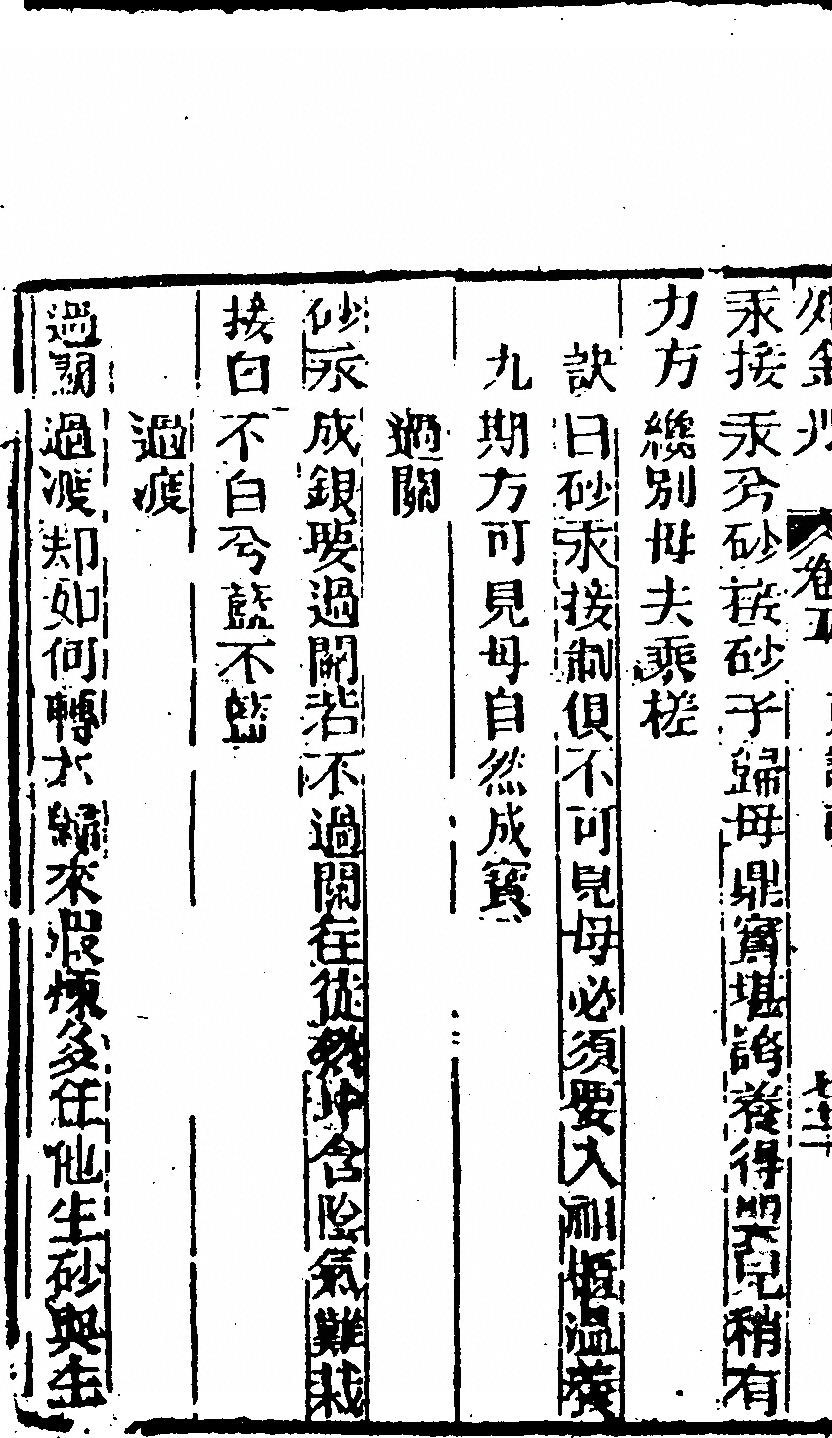 汞接汞兮砂接砂子歸母鼎實堪誇養得嬰兒稍有
力方纔別母去乘槎
訣曰砂汞接制俱不可見母必須要入神櫃温養
九期方可見母自然成寶
過關
砂汞成銀要過關若不過關在從然坤含陰氣難栽
接白不白兮藍不藍
過渡
過關過渡却如何轉大縮來煅煉多任他生砂與生